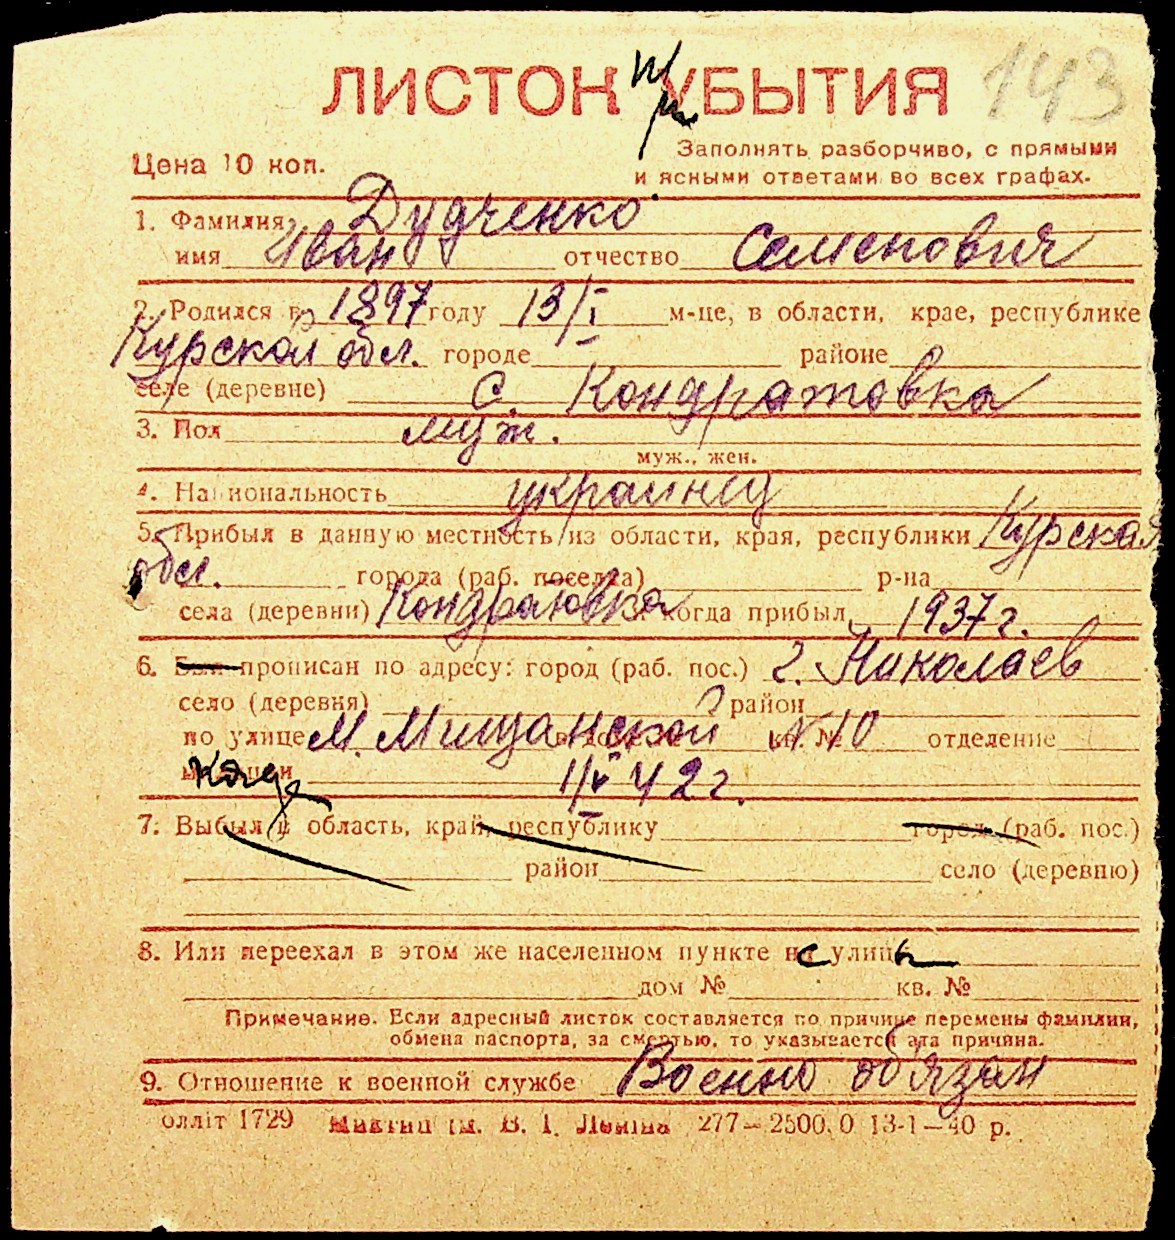 143
ЛИСТОК УБЫТИЯ
Цена 10 коп.
Заполнять разборчиво, с прямыми
и ясными ответами во всех графах.
1. Фамилия Дудченко
имя Иван отчество Семенович
2. Родился в 1897 году 13/I м-це, в области, крае, республике
Курской обл. городе районе
селе (деревне) с. Кондратовка
3. Пол муж.
муж., жен.
4. Национальность украинец
5. Прибыл в данную местность из области, края, республики Курская
обл. города (раб. поселка) р-на
села (деревни) Кондратовка когда прибыл 1937 г.
6. Был прописан по адресу: город (раб. пос.) г. Николаев
село (деревня) район
по улице М. Мищанской кв. № 10 отделение
милиции 42 г.
Когда
7. Выбыл в область, край, республику город (раб. пос.)
район село (деревню)
8. Или переехал в этом же населенном пункте с улицы
дом № кв. №
Примечание. Если адресный листок составляется по причине перемены фамилии,
обмена паспорта, за смертью, то указывается эта причина.
9. Отношение к военной службе Военно обязан
олліт 1729 ім. В. І. Леніна 277—2500.0 13-1—40 р.